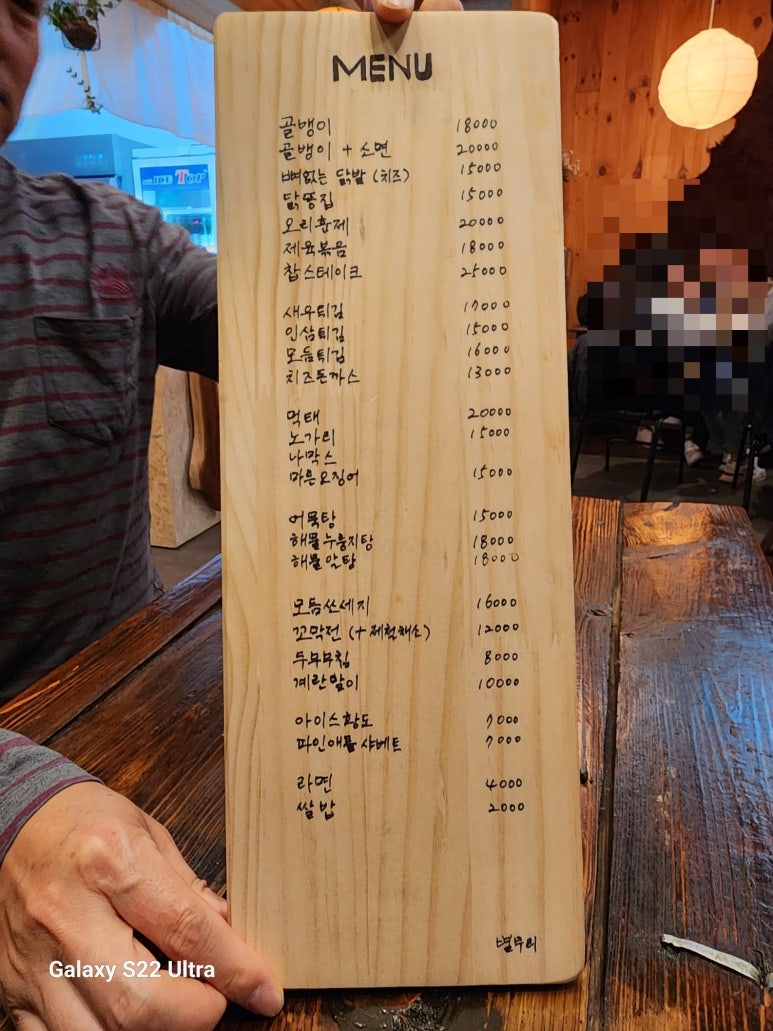 MENU
골뱅이 18000
골뱅이 + 소면 20000
뼈없는 닭발 (치즈) 15000
닭똥집 15000
오리훈제 20000
제육볶음 18000
찹스테이크 25000
새우튀김 17000
인삼튀김 15000
모듬튀김 16000
치즈돈까스 13000
먹태 20000
노가리 15000
나막스
마른오징어 15000
어묵탕 15000
해물누룽지탕 18000
해물알탕 18000
모듬쏘세지 16000
꼬막전 (+제철채소) 12000
두부부침 8000
계란말이 10000
아이스황도 7000
파인애플 샤베트 7000
라면 4000
쌀밥 2000
별무리
ICE Top
Galaxy S22 Ultra